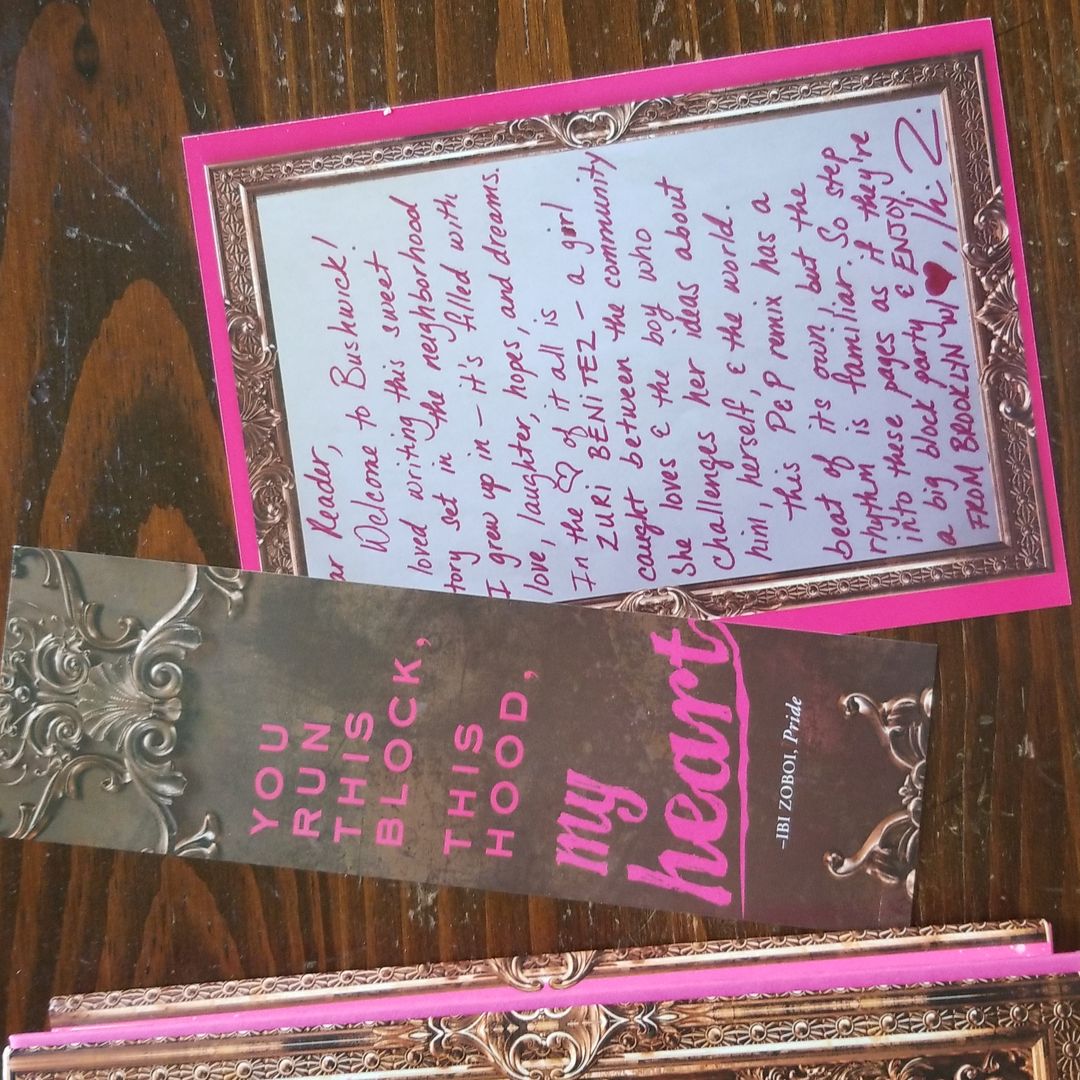 ar Reader,
Welcome to Bushwick!
loved writing this sweet
tory set in the neighborhood
I grew up in - it's filled with
love, laughter, hopes, and dreams.
In the ♡ of it all is
ZURI BENITEZ - a girl
caught between the community
She loves & the boy who
challenges her ideas about
him, herself, & the world.
this P&P remix has a
beat of its own, but the
rhythm is familiar. So step
into these pages as if they're
a big block party & ENJOY!
FROM BROOKLYN W/ ♥, Ibi Z.
YOU
RUN
THIS
BLOCK,
THIS
HOOD,
my
heart
–IBI ZOBOI, Pride